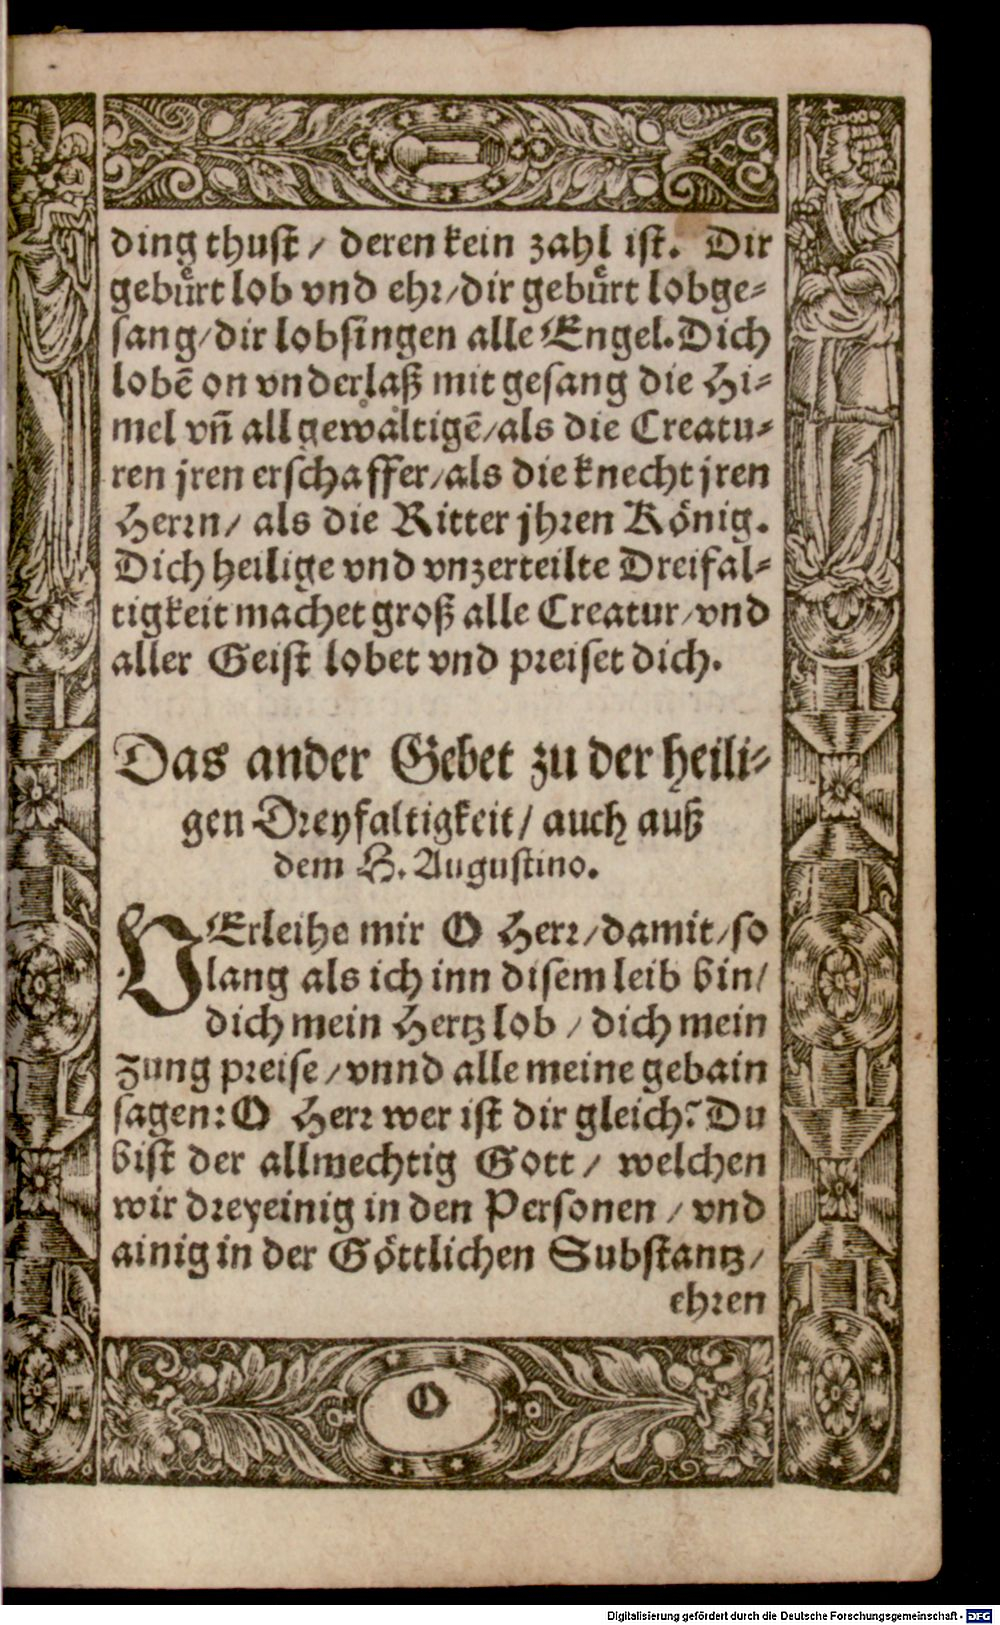 ding thuſt / deren kein zahl iſt. Dir
gebuͤrt lob vnd ehꝛ / dir gebuͤrt lobge⸗
ſang / dir lobſingen alle Engel. Dich
lobẽ on vnderlaß mit geſang die Hi⸗
mel vñ all gewaͤltigẽ / als die Creatu⸗
ren jren erſchaffer / als die knecht jren
Herꝛn / als die Ritter jhꝛen Koͤnig.
Dich heilige vnd vnzerteilte Dreifal⸗
tigkeit machet groß alle Creatur / vnd
aller Geiſt lobet vnd pꝛeiſet dich.
Das ander Gebet zu der heili⸗
gen Dꝛeyfaltigkeit / auch auß
dem H. Auguſtino.
VErleihe mir O Herꝛ / damit / ſo
lang als ich inn diſem leib bin /
dich mein Hertz lob / dich mein
Zung pꝛeiſe / vnnd alle meine gebain
ſagen: O Herꝛ wer iſt dir gleich? Du
biſt der allmechtig Gott / welchen
wir dꝛeyeinig in den Perſonen / vnd
ainig in der Goͤttlichen Subſtantz /
ehꝛen
O
Digitalisierung gefördert durch die Deutsche Forschungsgemeinschaft - DFG